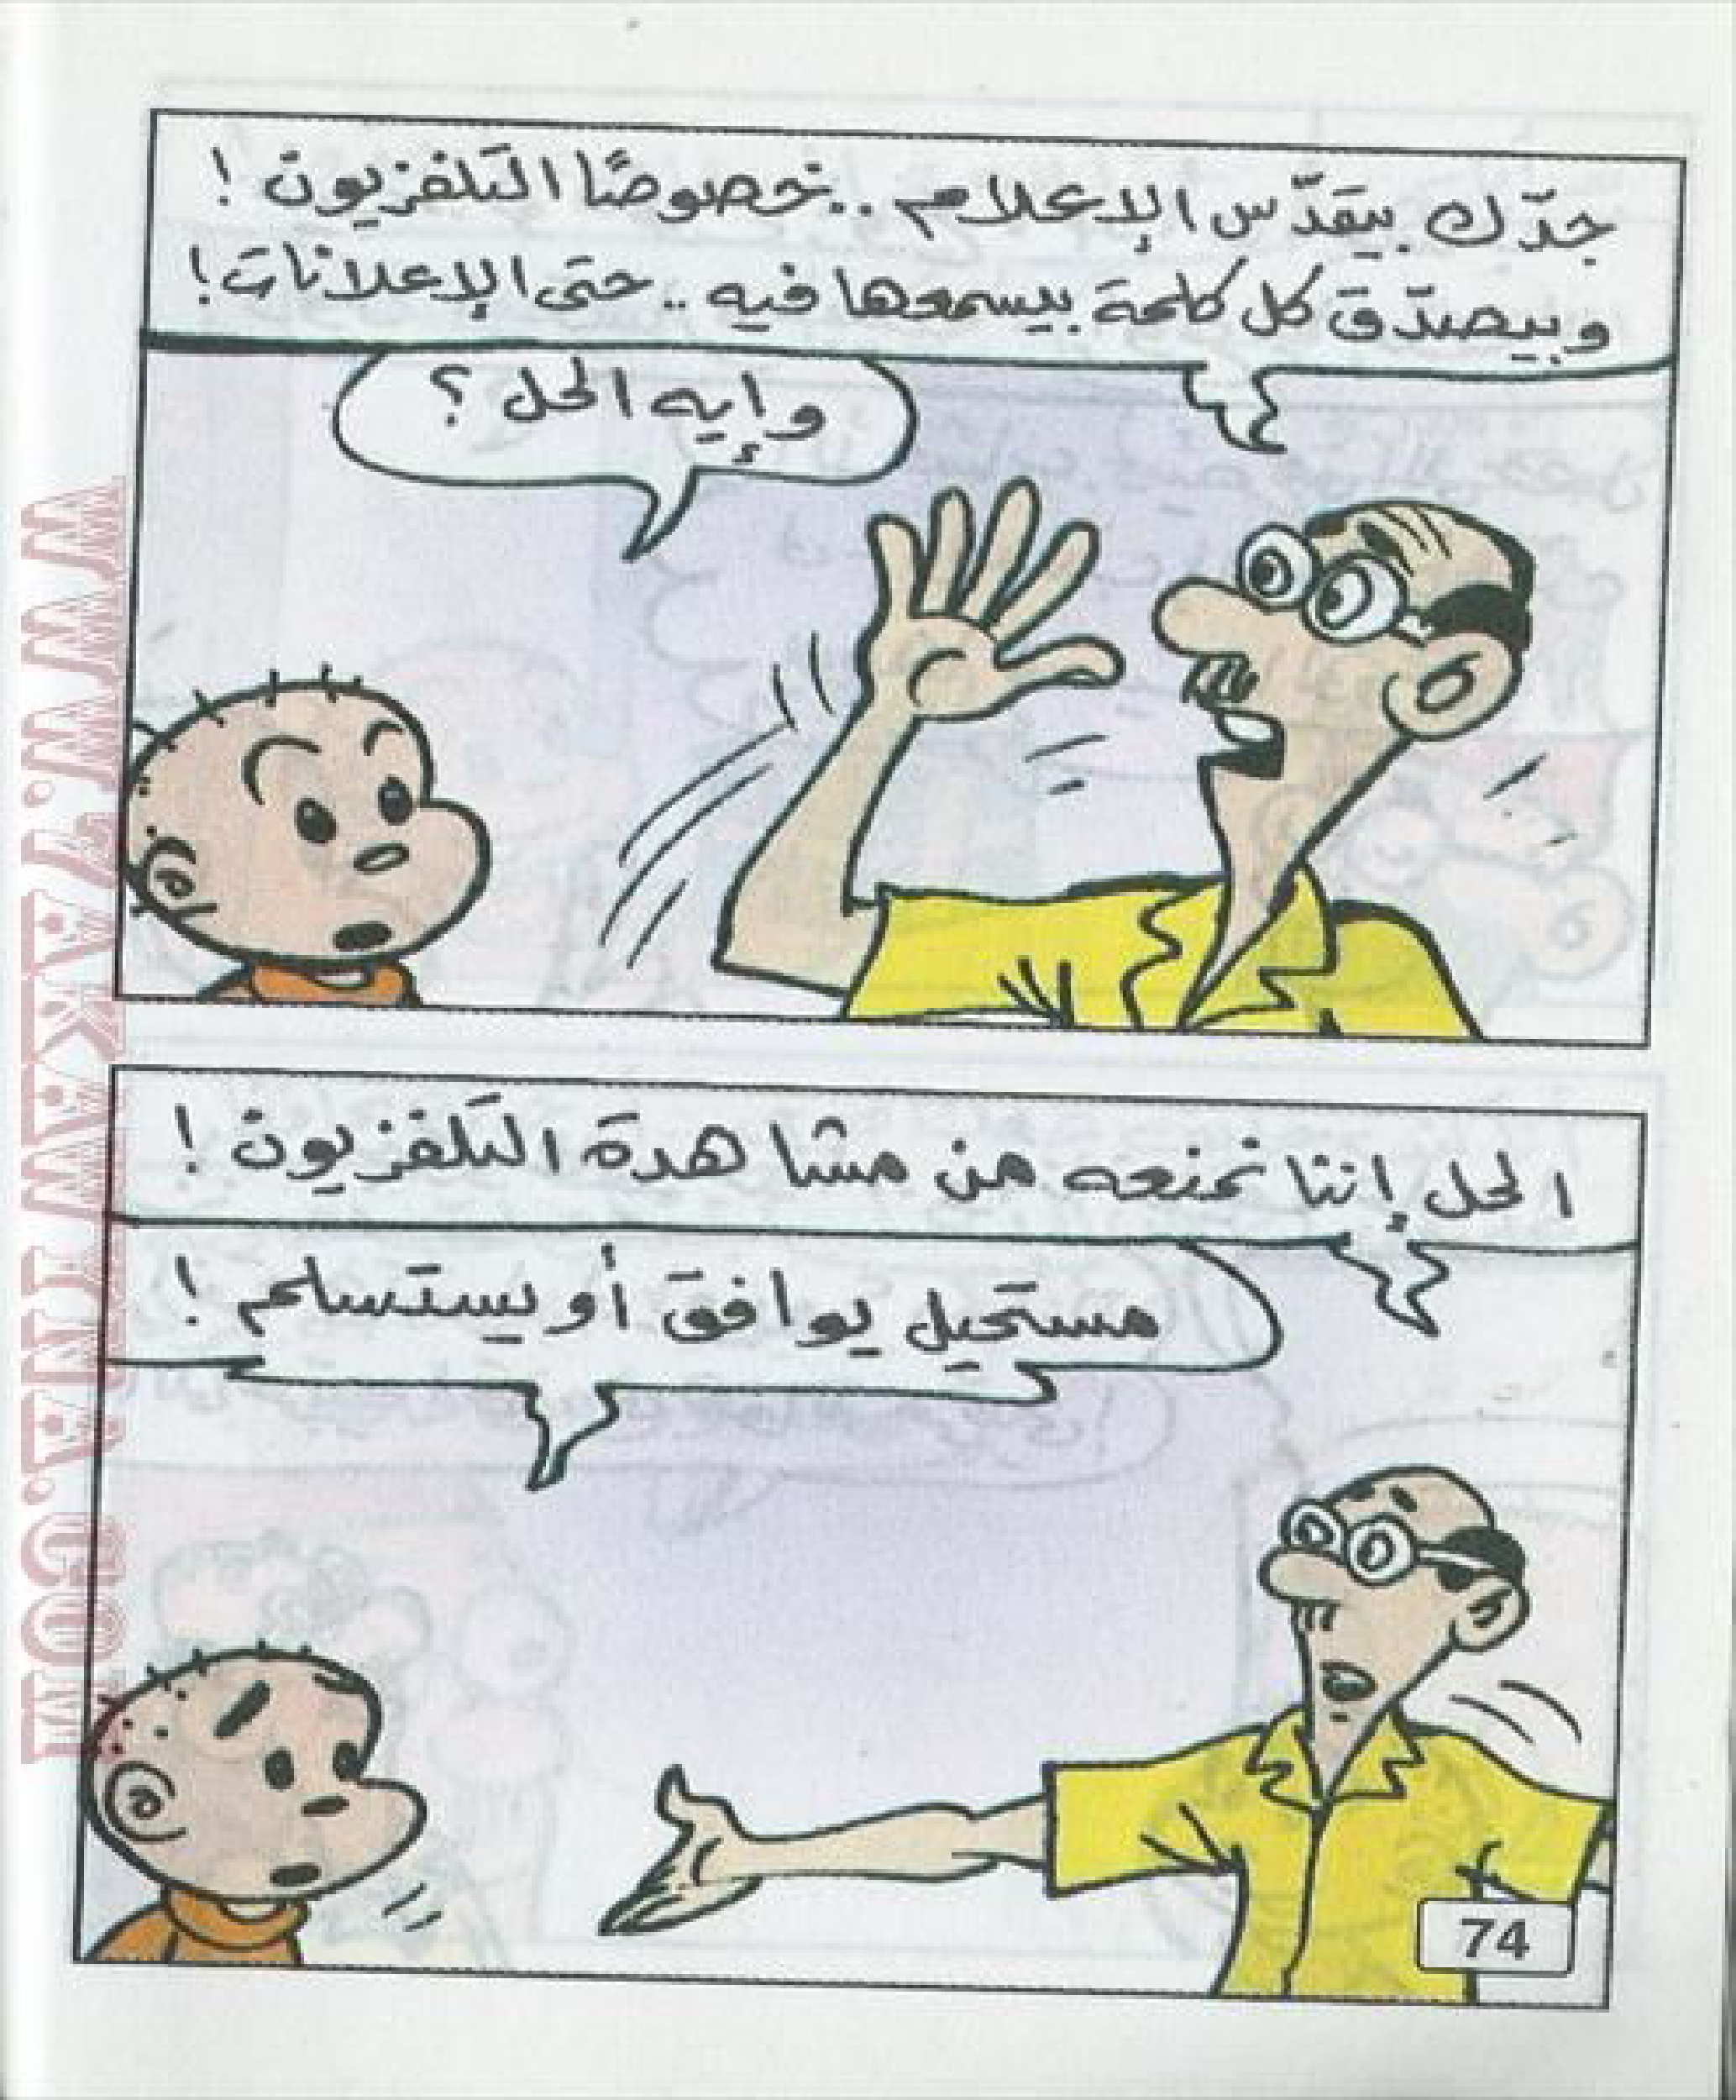 جدّك بيقدّس الإعلام .. خصوصًا التلفزيون !
وبيصدّق كل كلمة بيسمعها فيه .. حتى الإعلانات !
وإيه الحل ؟
الحل إننا نمنعه من مشاهدة التلفزيون !
مستحيل يوافق أو يستسلم !
74
WWW.7AKAWITNA.COM